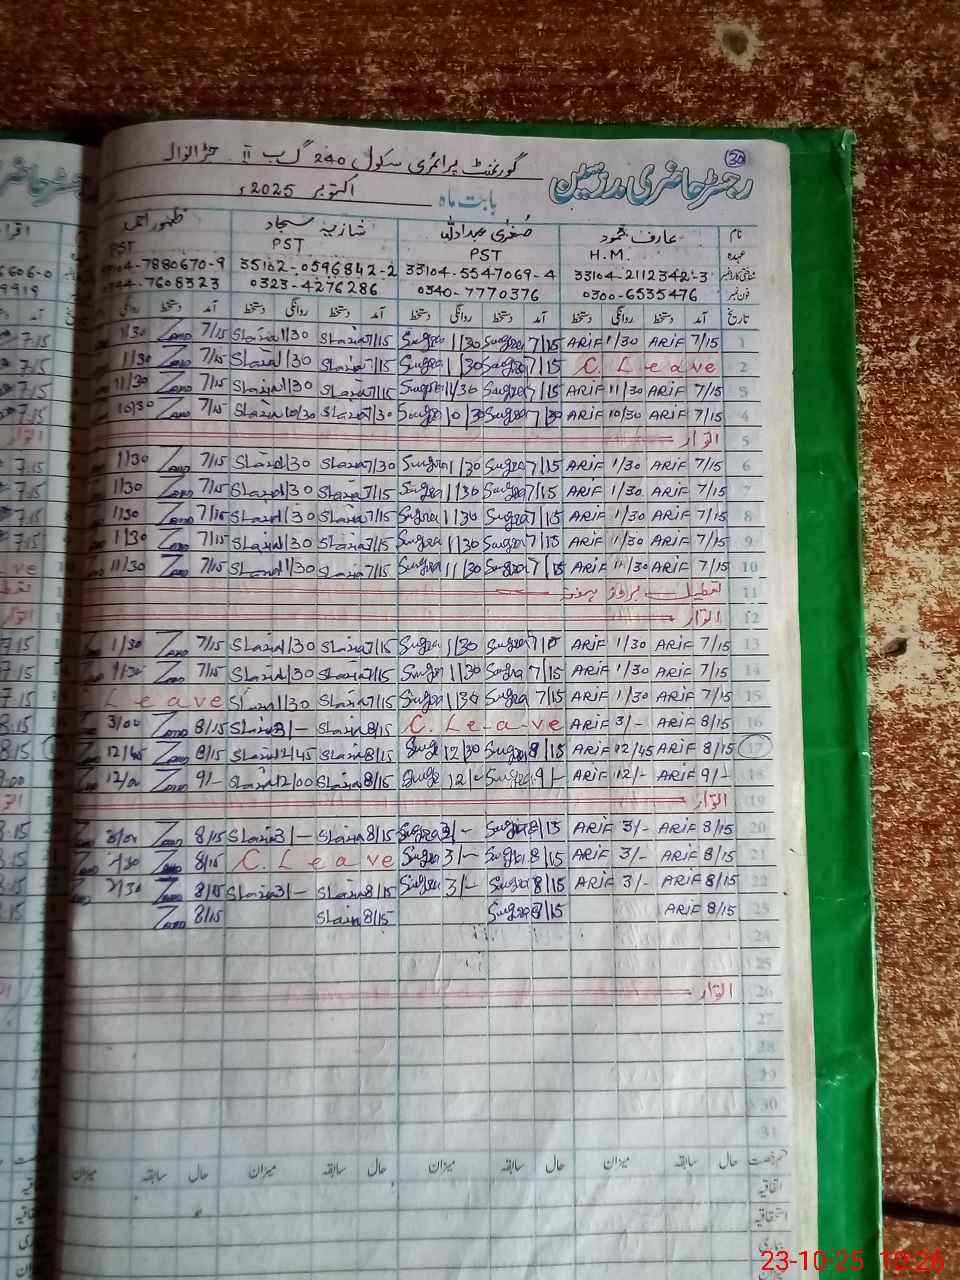 30
رجسٹر حاضری مدرسین گورنمنٹ پرائمری سکول 240 گ ب II جڑانوالہ
بابت ماہ اکتوبر 2025ء
نام عارف محمود صغریٰ عبداللہ شازیہ سجاد ظہور احمد
عہدہ H.M. PST PST PST
33104-2112342-3 33104-5547069-4 35102-0596842-2 33104-7880670-9
فون نمبر 0300-6535476 0340-7770376 0323-4276286 0344-7608323
تاریخ آمد دستخط روانگی دستخط آمد دستخط روانگی دستخط آمد دستخط روانگی دستخط آمد دستخط روانگی
1 7/15 ARIF 1/30 ARIF 7/15 Sugra 1/30 Sugra 7/15 Shazia 1/30 Shazia 7/15 1/30
2 C. Leave 7/15 Sugra 1/30 Sugra 7/15 Shazia 1/30 Shazia 7/15 1/30
3 7/15 ARIF 11/30 ARIF 7/15 Sugra 11/30 Sugra 7/15 Shazia 11/30 Shazia 7/15 11/30
4 7/15 ARIF 10/30 ARIF 7/30 Sugra 10/30 Sugra 7/30 Shazia 10/30 Shazia 7/15 10/30
5 اتوار
6 7/15 ARIF 1/30 ARIF 7/15 Sugra 1/30 Sugra 7/30 Shazia 1/30 Shazia 7/15 1/30
7 7/15 ARIF 1/30 ARIF 7/15 Sugra 1/30 Sugra 7/15 Shazia 1/30 Shazia 7/15 1/30
8 7/15 ARIF 1/30 ARIF 7/15 Sugra 1/30 Sugra 7/15 Shazia 1/30 Shazia 7/15 1/30
9 7/15 ARIF 11/30 ARIF 7/15 Sugra 11/30 Sugra 7/15 Shazia 1/30 Shazia 7/15 11/30
10 7/15 ARIF 11/30 ARIF 7/15 Sugra 11/30 Sugra 7/15 Shazia 11/30 Shazia 7/15 11/30
11 تعطیل بروز ہفتہ
12 اتوار
13 7/15 ARIF 1/30 ARIF 7/15 Sugra 1/30 Sugra 7/15 Shazia 1/30 Shazia 7/15 1/30
14 7/15 ARIF 1/30 ARIF 7/15 Sugra 1/30 Sugra 7/15 Shazia 1/30 Shazia 7/15 1/30
15 7/15 ARIF 1/30 ARIF 7/15 Sugra 1/30 Sugra 7/15 Shazia 1/30 Shazia Leave
16 8/15 ARIF 3/- ARIF C. Leave 8/15 Shazia 3/- Shazia 8/15 3/00
17 8/15 ARIF 12/45 ARIF 8/15 Sugra 12/30 Sugra 8/15 Shazia 12/45 Shazia 8/15 12/45
18 9/- ARIF 12/- ARIF 9/- Sugra 12/- Sugra 8/15 Shazia 12/00 Shazia 9/- 12/00
19 اتوار
20 8/15 ARIF 3/- ARIF 8/15 Sugra 3/- Sugra 8/15 Shazia 3/- Shazia 8/15
21 8/15 ARIF 3/- ARIF 8/15 Sugra 3/- Sugra C. Leave 8/15
22 8/15 ARIF 3/- ARIF 8/15 Sugra 3/- Sugra 8/15 Shazia 3/- Shazia 8/15 2/30
23 8/15 ARIF Sugra 8/15 Shazia 8/15
24
25
26 اتوار
27
28
29
30
31
حال سابقہ میزان حال سابقہ میزان حال سابقہ میزان حال سابقہ میزان
اتفاقیہ
استحقاقیہ
بیماری
23-10-25 10:26